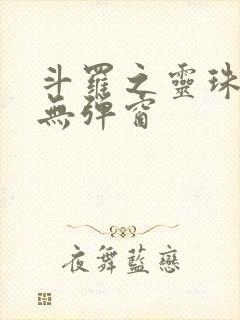 斗羅之靈珠
無彈窗
夜舞藍戀